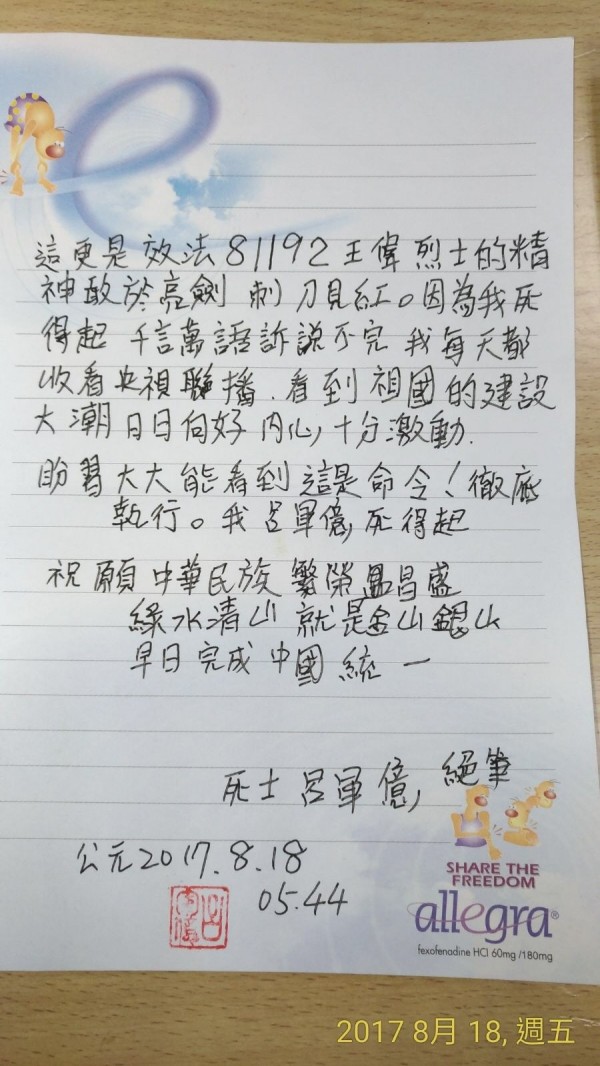 這更是效法81192王偉烈士的精
神敢於亮劍 刺刀見紅。因為我死
得起 千言萬語訴說不完 我每天都
收看央視聯播.看到祖國的建設
大潮日日向好 內心十分激動.
盼習大大能看到這是命令!徹底
執行。我呂軍億死得起
祝願中華民族繁榮昌盛
綠水清山 就是金山銀山
早日完成中國統一
死士 呂軍億 絕筆
公元2017.8.18
05.44
SHARE THE
FREEDOM
allegra®
fexofenadine HCl 60mg /180mg
2017 8月 18, 週五